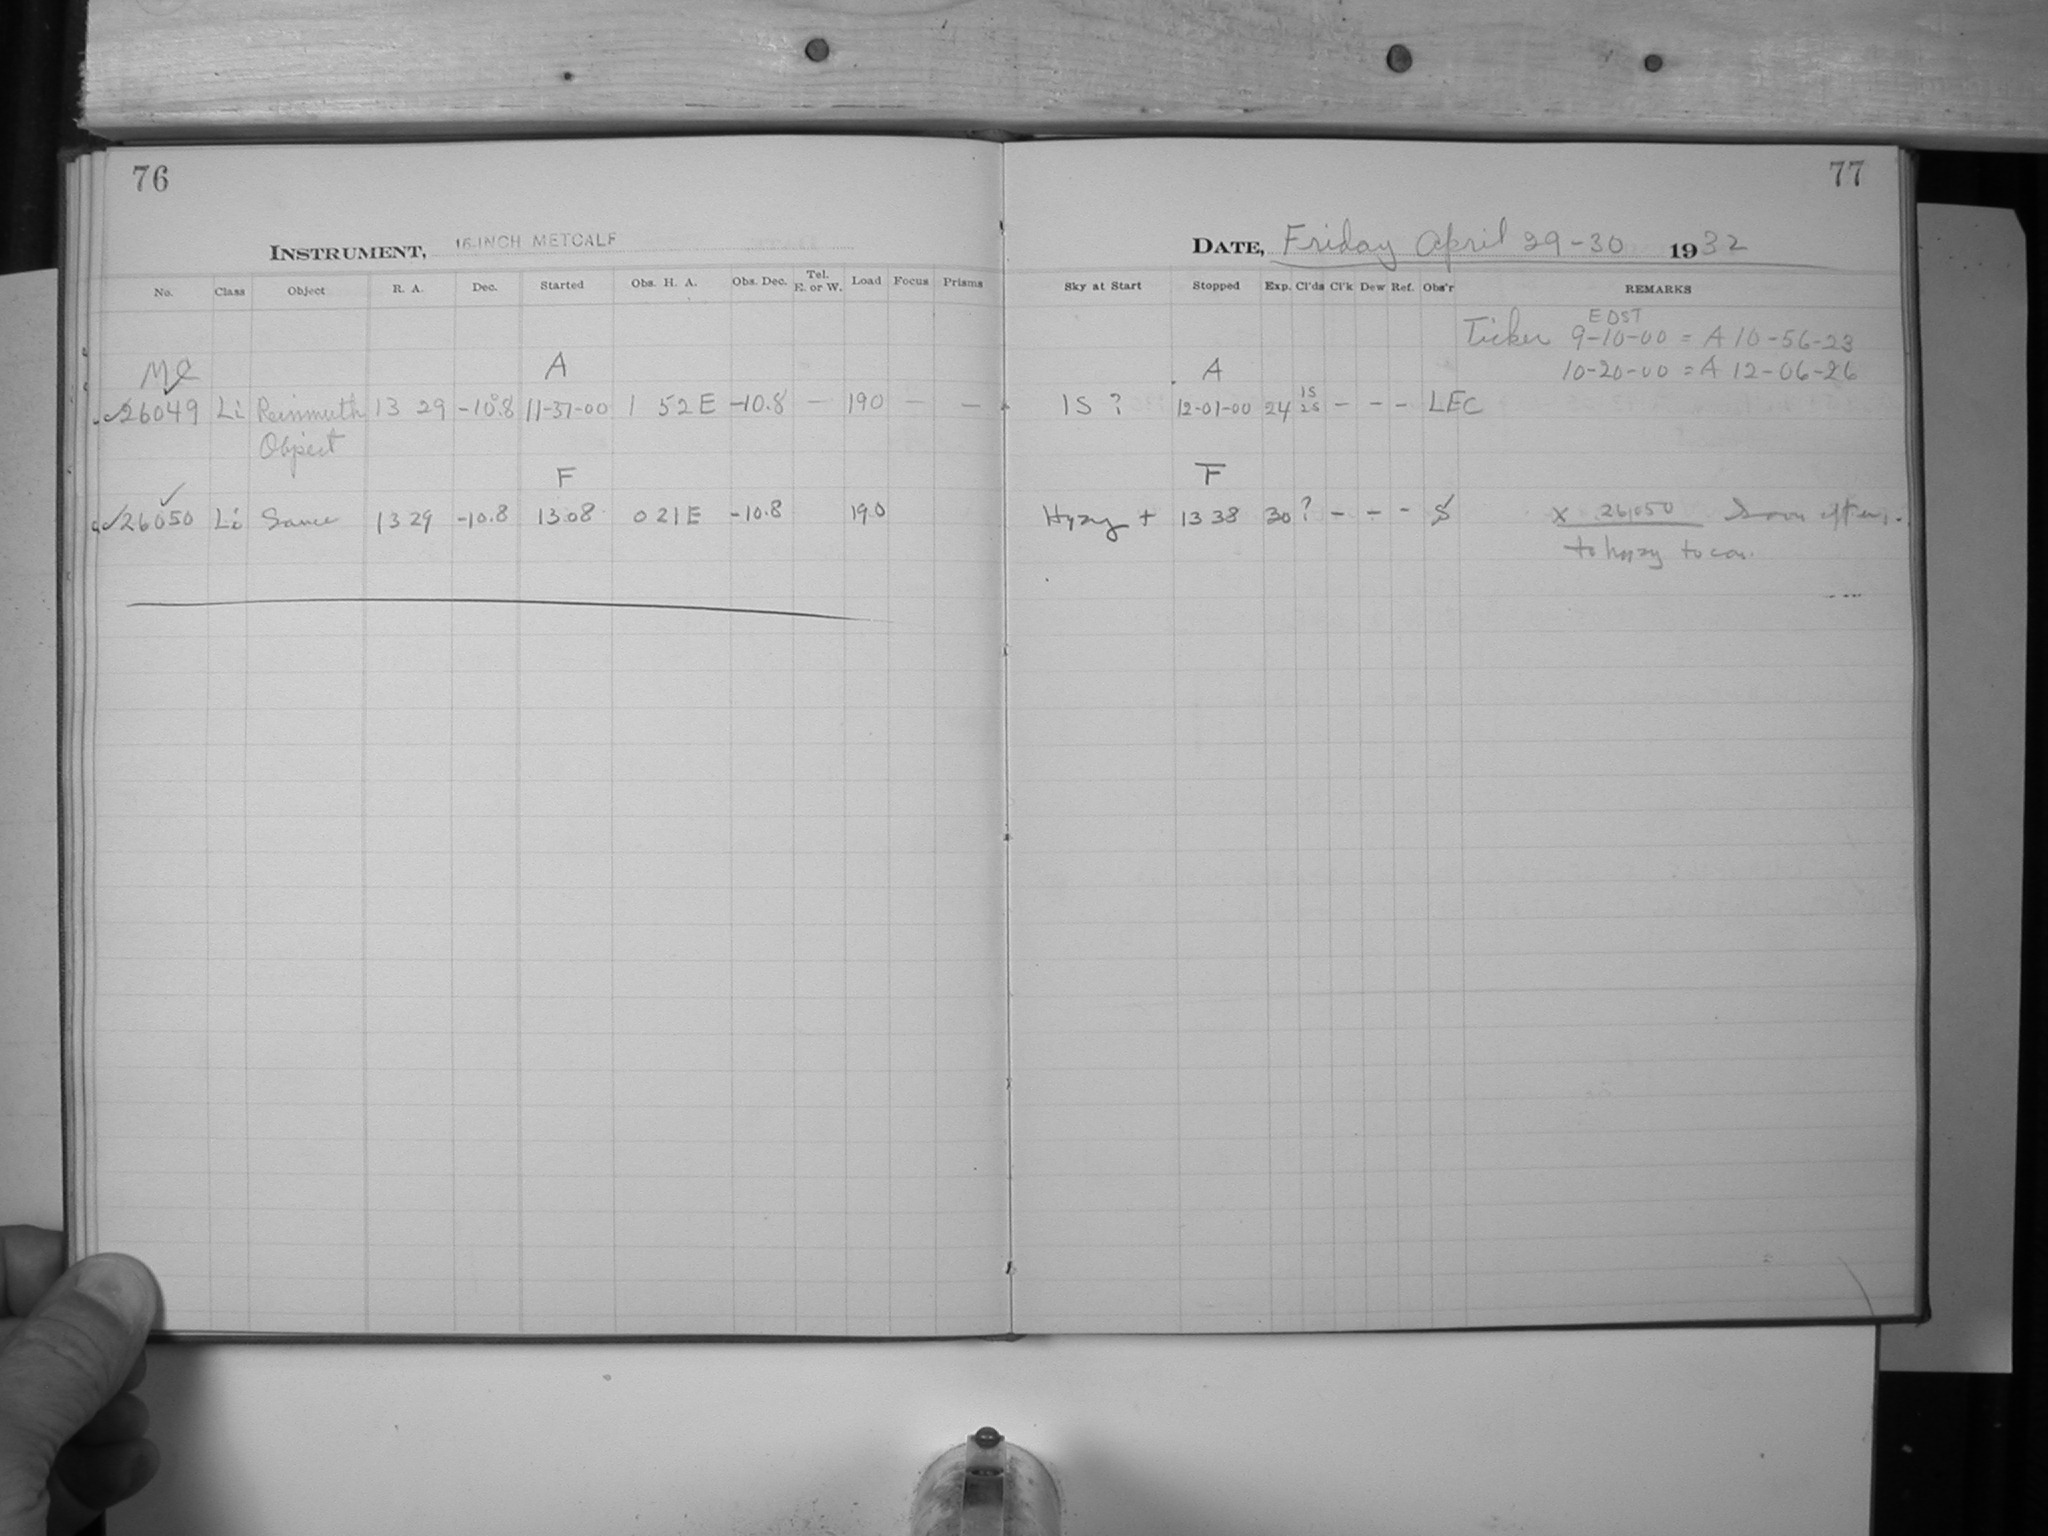 76
INSTRUMENT, 16-INCH METCALF
No. Class Object R. A. Dec. Started Obs. H. A. Obs. Dec. Tel. E. or W. Load Focus Prisms
MC A
26049 Li Reinmuth 13 29 -10°.8 11-37-00 1 52 E -10.8 - 190 - -
Object
F
26050 Li Same 13 29 -10.8 13 08 0 21 E -10.8 190
77
DATE, Friday April 29-30 1932
Sky at Start Stopped Exp. Cl'ds Cl'k Dew Ref. Obs'r REMARKS
EDST
Ticker 9-10-00 = A 10-56-23
A 10-20-00 = A 12-06-26
1S ? 12-01-00 24 1S 2S - - - LEC
F
Hazy + 13 38 30 ? - - - S x 26050 Soon after
to hazy to